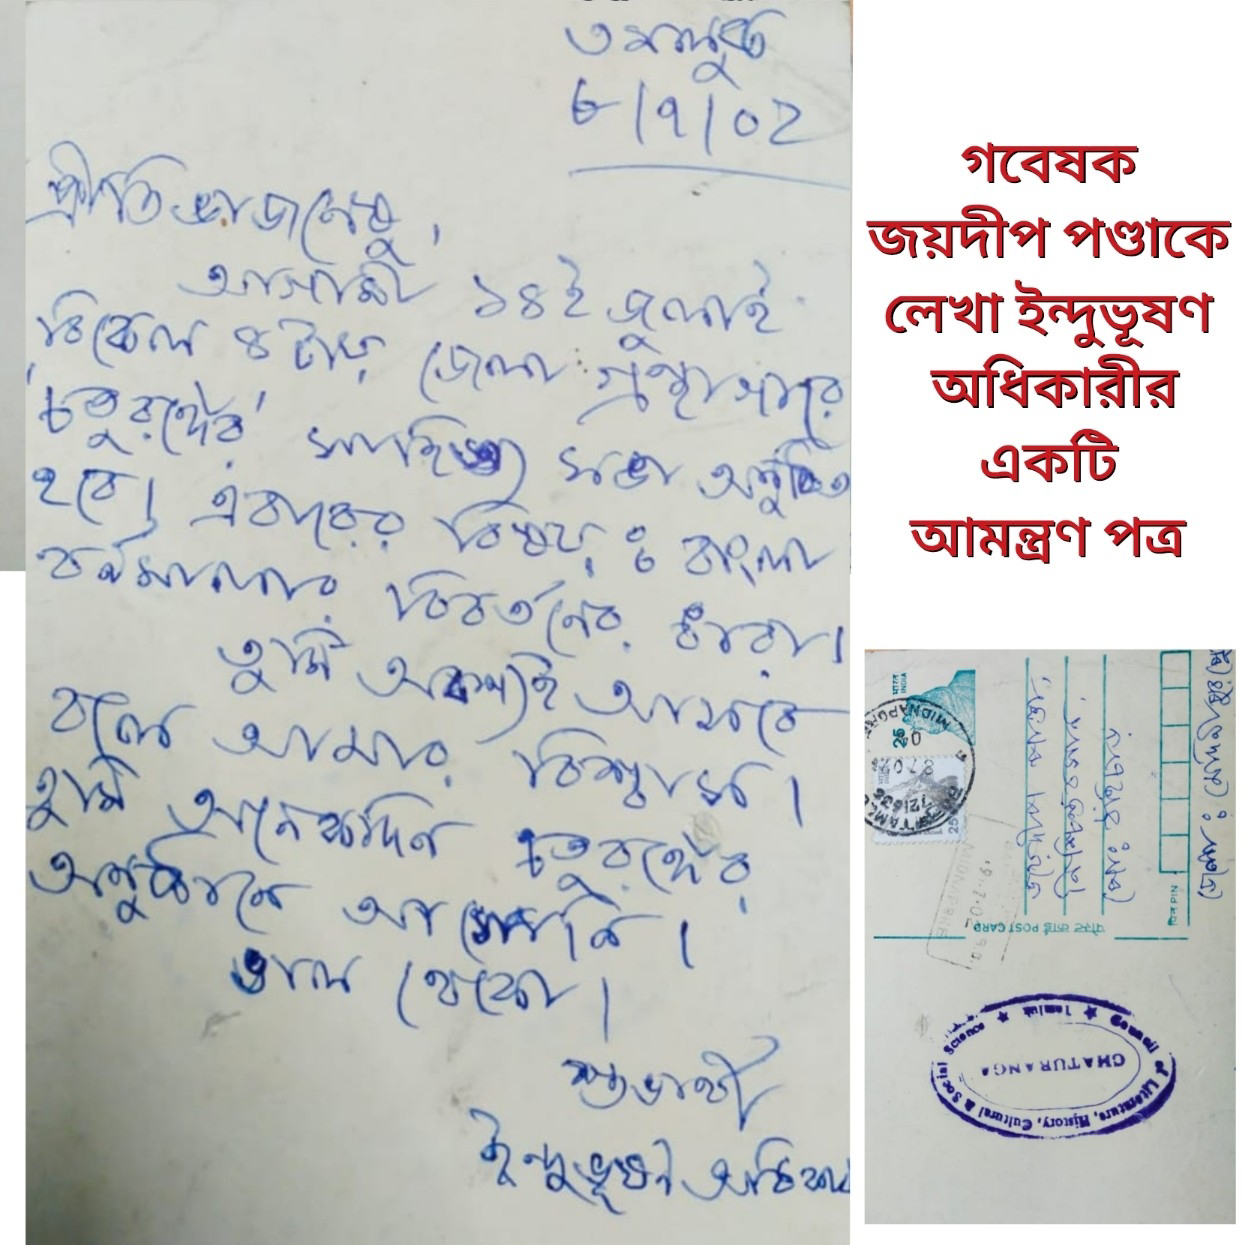 তমলুক
৮/৭/০২
প্রীতিভাজনেষু,
আগামী ১৪ই জুলাই
বিকেল ৪টায় জেলা গ্রন্থাগারে
'চতুরঙ্গের' সাহিত্য সভা অনুষ্ঠিত
হবে। এবারের বিষয় ঃ বাংলা
বর্ণমালার বিবর্তনের ধারা।
তুমি অবশ্যই আসবে
বলে আমার বিশ্বাস।
তুমি অনেকদিন চতুরঙ্গের
অনুষ্ঠানে আসোনি।
ভাল থেকো।
শুভার্থী
ইন্দুভূষণ অধিকারী
গবেষক
জয়দীপ পণ্ডাকে
লেখা ইন্দুভূষণ
অধিকারীর
একটি
আমন্ত্রণ পত্র
भारत INDIA
25
MIDNAPORE
TAMLUK
721636
25
MIDNAPORE
पोस्ट कार्ड POST CARD
पिन PIN
Council of Literature, History, Cultural & Social Science ★ Tamluk ★
CHATURANGA